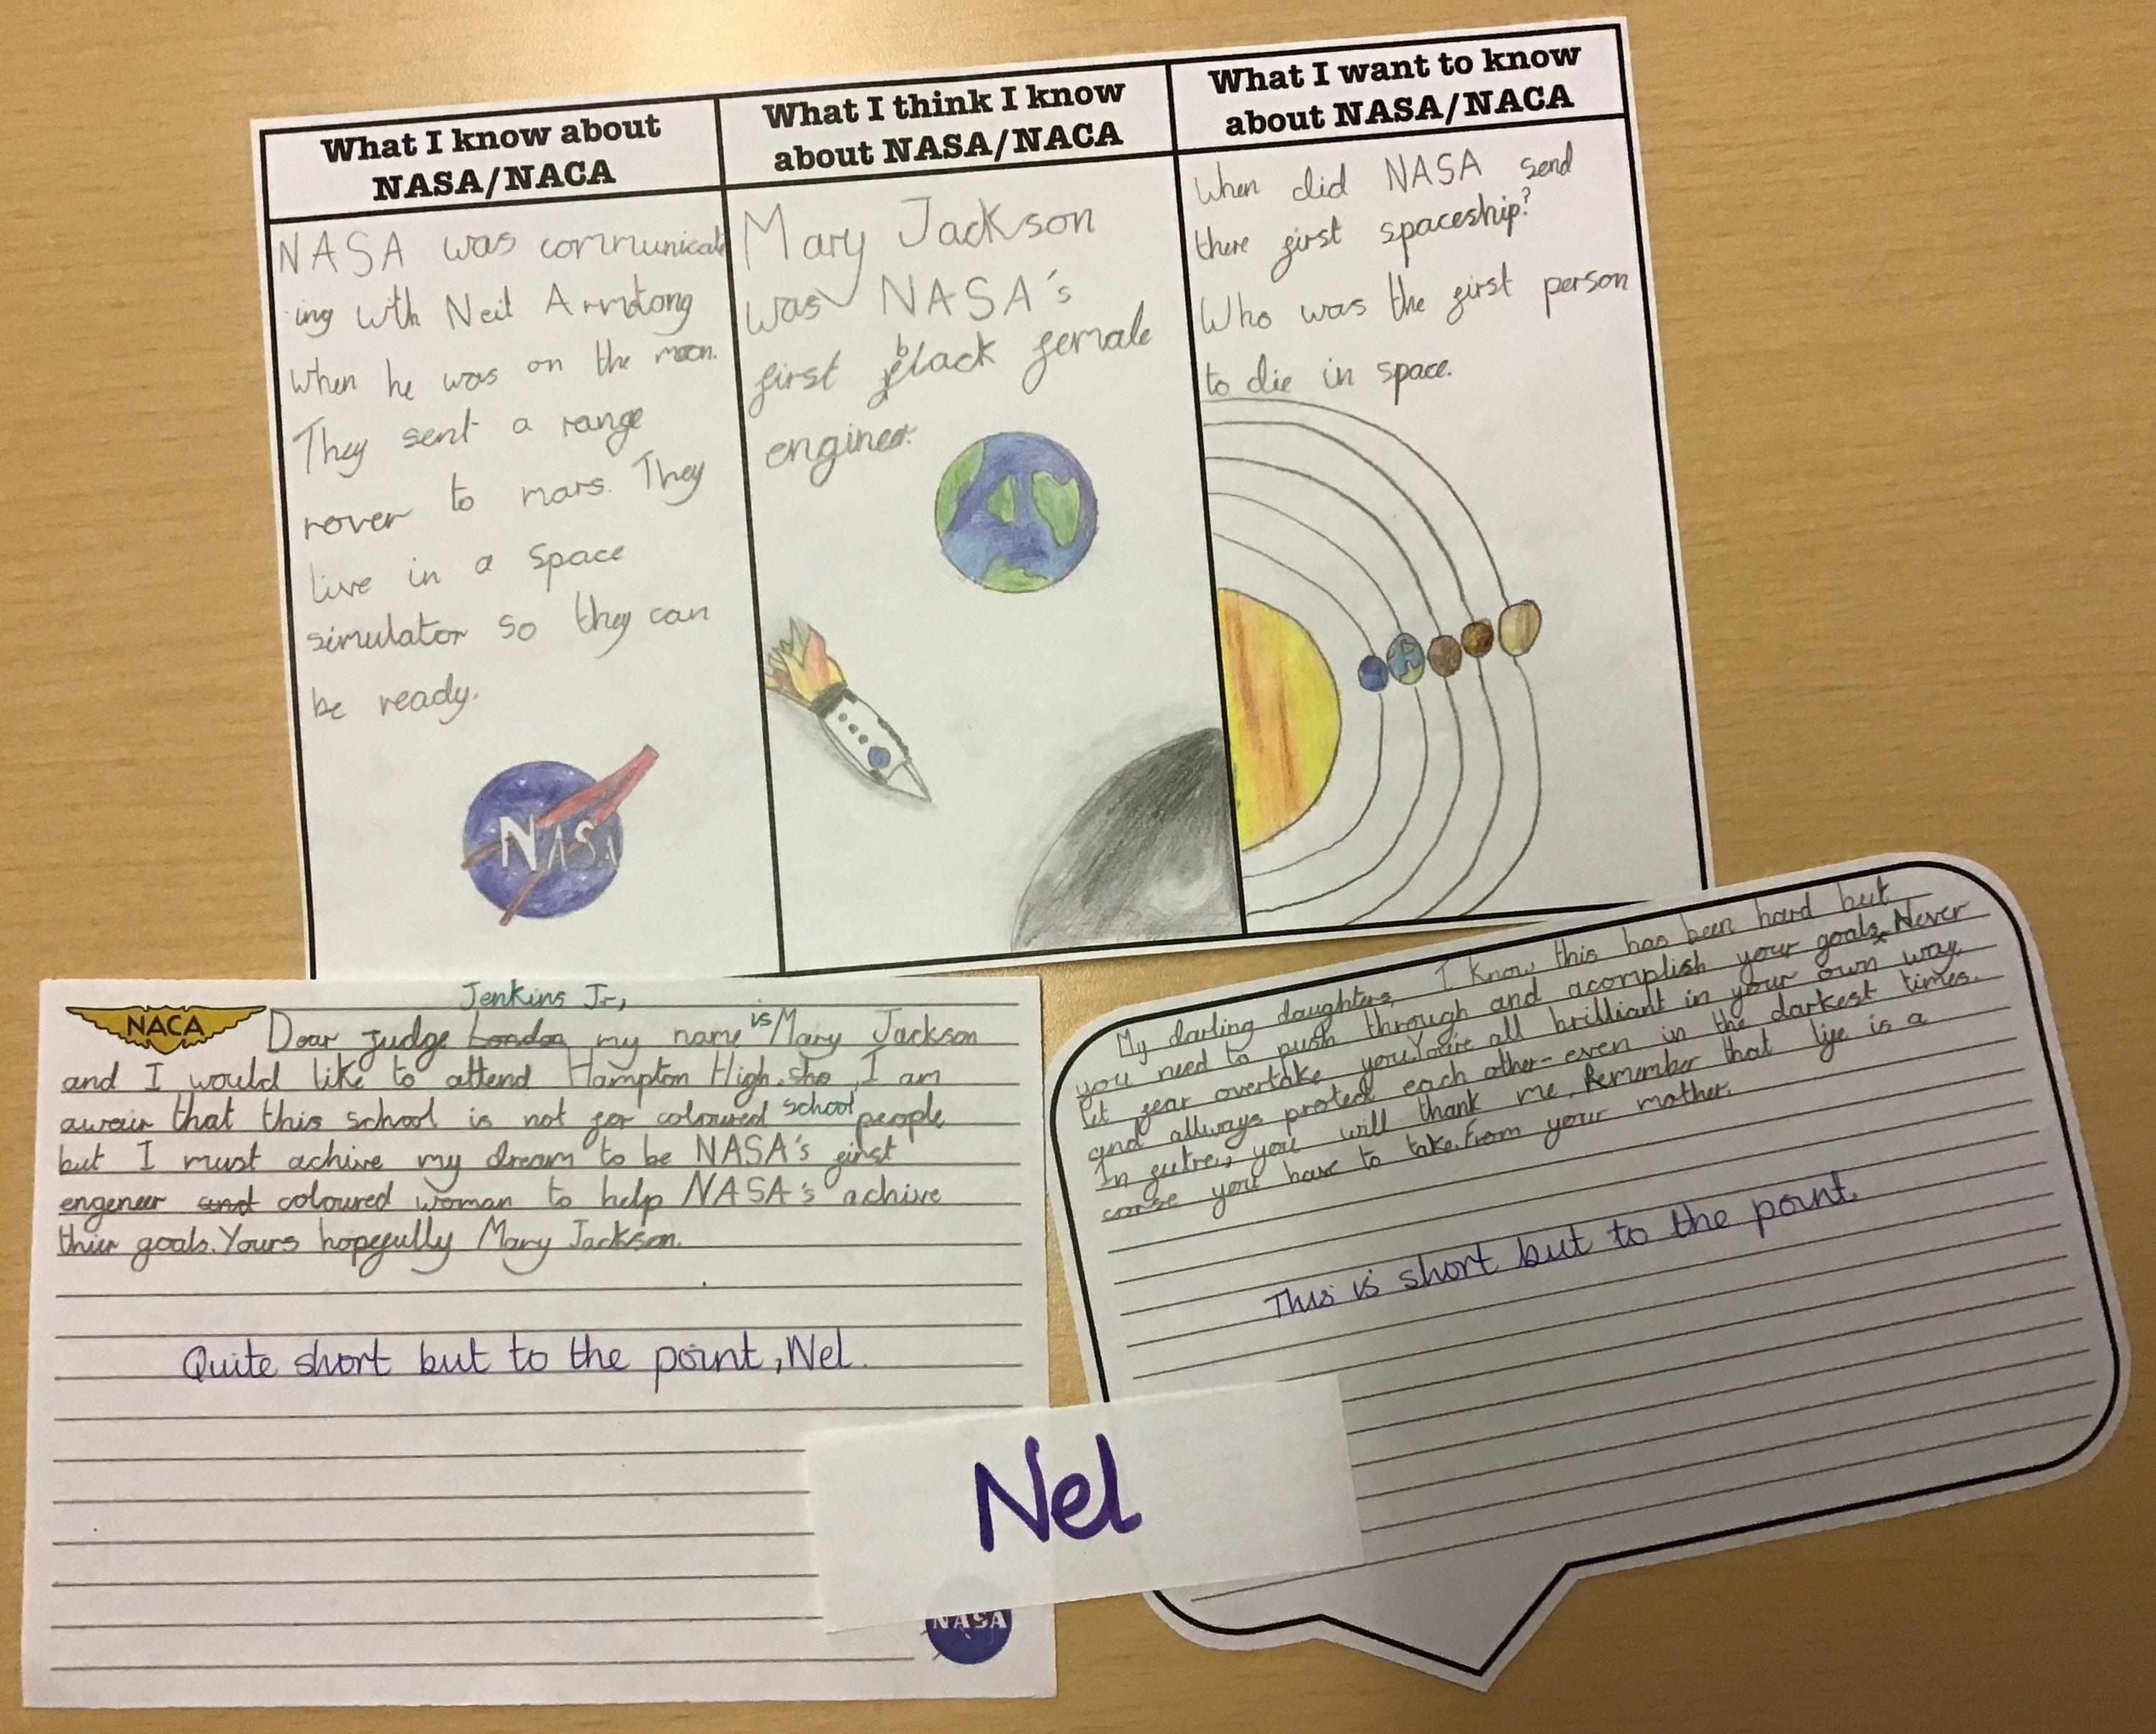 What I know about
NASA/NACA
NASA was communicat
ing with Neil Armstong
when he was on the moon.
They sent a range
rover to mars. They
live in a space
simulator so they can
be ready.
NASA
What I think I know
about NASA/NACA
Mary Jackson
was NASA's
first black female
engineer.
What I want to know
about NASA/NACA
When did NASA send
there first spaceship?
Who was the first person
to die in space.
NACA
Jenkins Jr,
Dear judge London my name is Mary Jackson
and I would like to attend Hampton High. I am
awair that this school is not for coloured school people
but I must achive my dream to be NASA's first
engeneer and coloured woman to help NASA's achive
thier goals. Yours hopefully Mary Jackson.
Quite short but to the point, Nel.
NASA
My darling daughters, I know this has been hard but
you need to push through and acomplish your goals. Never
let fear overtake you. You're all brilliant in your own way
and allways protect each other - even in the darkest times.
In futre, you will thank me. Remember that life is a
corse you have to take. From your mother.
This is short but to the point.
Nel